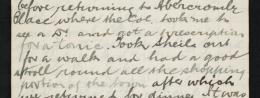 before returning to Abercrombie
Place where the Col. took me to
see a Dr. and got a prescription
for a tonic. Took Sheila out
for a walk and had a good
stroll round all the shopping
portion of the town after which
we returned for dinner. It was